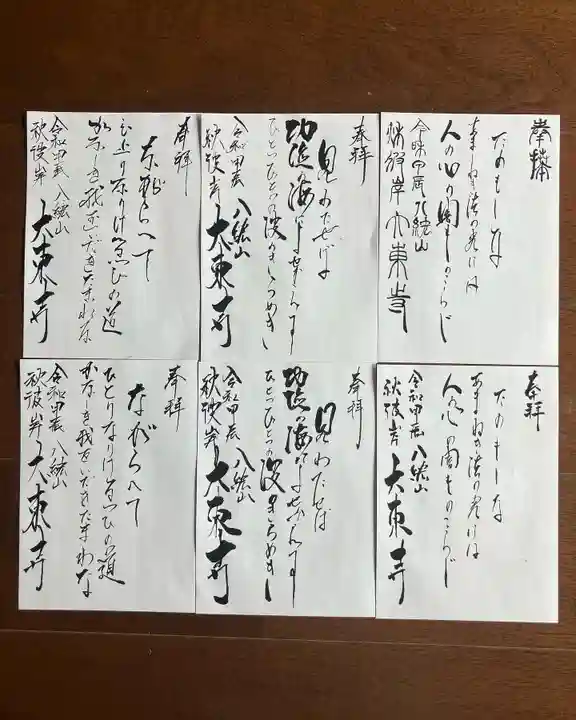 奉拝
たのもしな
あまねき法の光には
人の心の闇ものこらじ
令和甲辰 八紘山
秋彼岸 大東寺
奉拝
見わたせば
ひとつひとつの波
令和甲辰 八紘山
秋彼岸 大東寺
奉拝
ながらへて
ひとりなりけるつひの道
かなしき我をいだきたまわな
令和甲辰 八紘山
秋彼岸 大東寺
奉拝
たのもしな
あまねき法の光には
人の心の闇ものこらじ
令和甲辰 八紘山
秋彼岸 大東寺
奉拝
見わたせば
ひとつひとつの波
令和甲辰 八紘山
秋彼岸 大東寺
奉拝
ながらへて
ひとりなりけるつひの道
かなしき我をいだきたまわな
令和甲辰 八紘山
秋彼岸 大東寺